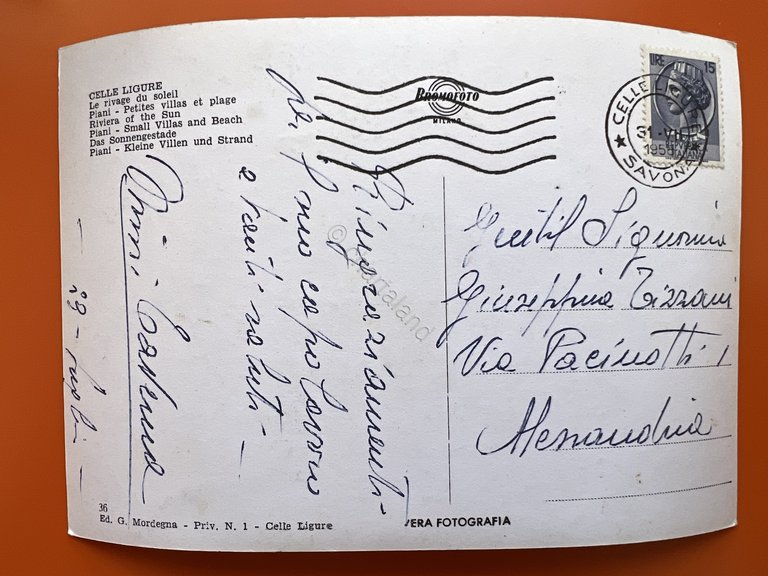 CELLE LIGURE
Le rivage du soleil
Piani - Petites villas et plage
Riviera of the Sun
Piani - Small Villas and Beach
Das Sonnengestade
Piani - Kleine Villen und Strand
BROMOFOTO
MILANO
LIRE 15
CELLE
31-VII
195
SAVONA
Ringraziamenti -
pel Suo capolavoro
e tanti saluti -
Mimi Caverna
29 - luglio -
Gentil Signorina
Giuseppina Tizzani
Via Pacinotti 1
Alessandria
© Cartaland
36
Ed. G. Mordegna - Priv. N. 1 - Celle Ligure
VERA FOTOGRAFIA